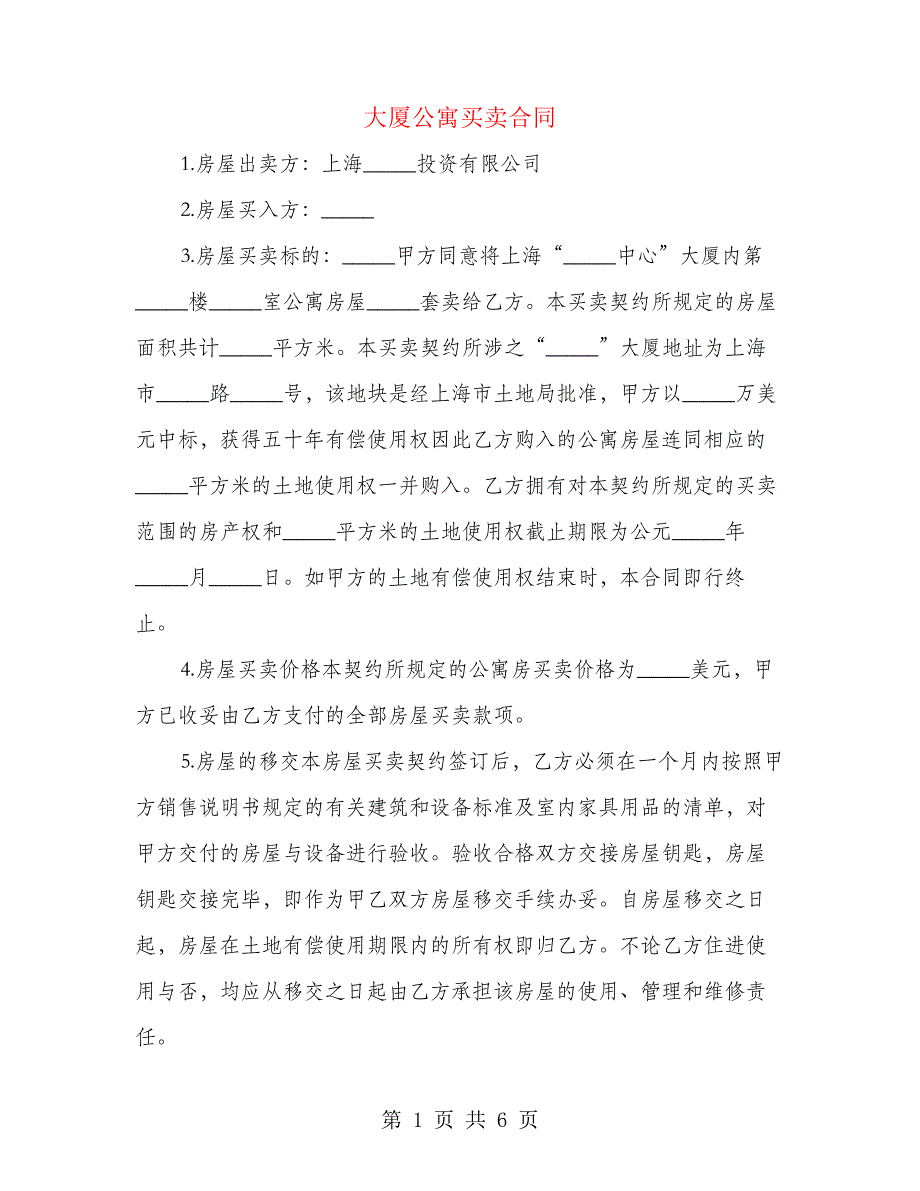 大厦公寓买卖合同
1.房屋出卖方：上海_____投资有限公司
2.房屋买入方：_____
3.房屋买卖标的：_____甲方同意将上海“_____中心”大厦内第
_____楼_____室公寓房屋_____套卖给乙方。本买卖契约所规定的房屋
面积共计_____平方米。本买卖契约所涉之“_____”大厦地址为上海
市_____路_____号，该地块是经上海市土地局批准，甲方以_____万美
元中标，获得五十年有偿使用权因此乙方购入的公寓房屋连同相应的
_____平方米的土地使用权一并购入。乙方拥有对本契约所规定的买卖
范围的房产权和_____平方米的土地使用权截止期限为公元_____年
_____月_____日。如甲方的土地有偿使用权结束时，本合同即行终
止。
4.房屋买卖价格本契约所规定的公寓房买卖价格为_____美元，甲
方已收妥由乙方支付的全部房屋买卖款项。
5.房屋的移交本房屋买卖契约签订后，乙方必须在一个月内按照甲
方销售说明书规定的有关建筑和设备标准及室内家具用品的清单，对
甲方交付的房屋与设备进行验收。验收合格双方交接房屋钥匙，房屋
钥匙交接完毕，即作为甲乙双方房屋移交手续办妥。自房屋移交之日
起，房屋在土地有偿使用期限内的所有权即归乙方。不论乙方住进使
用与否，均应从移交之日起由乙方承担该房屋的使用、管理和维修责
任。
第 1 页 共 6 页